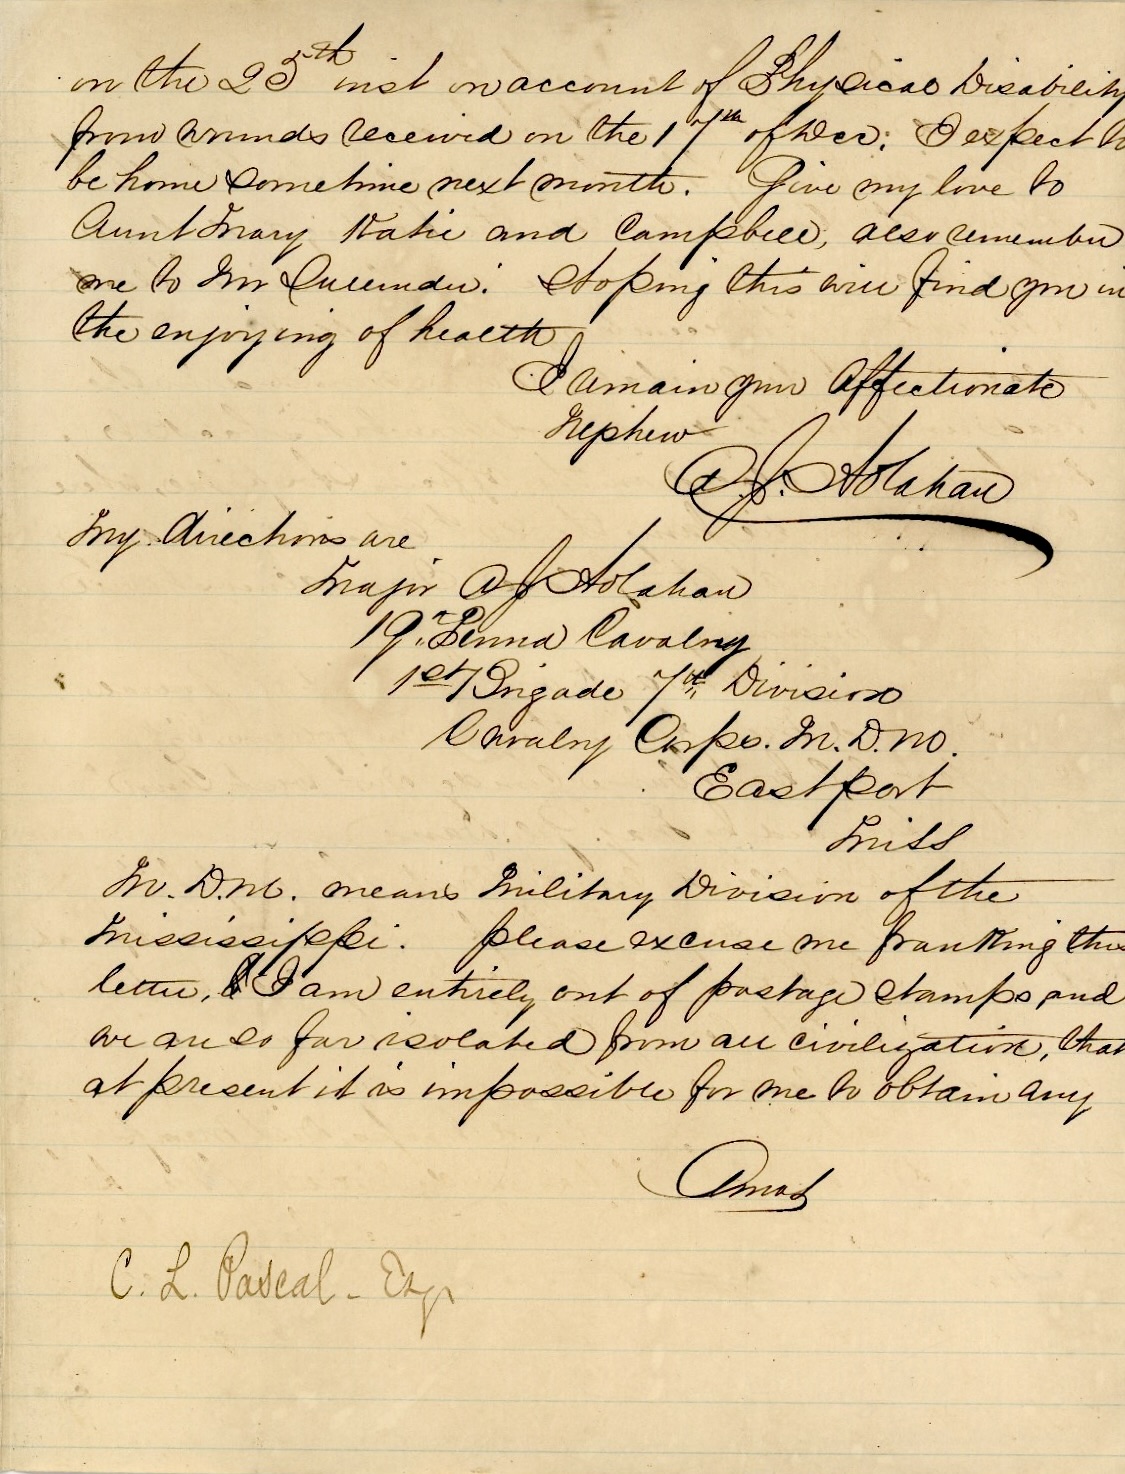 on the 25th inst on account of Physical Disability
from wounds received on the 17th of Dec: I expect to
be home sometime next month. Give my love to
Aunt Mary Katie and Campbell, also remember
me to Mr Hoping this will find you in
the enjoying of health
I remain your affectionate
Nephew
A. J. Holahan
My directions are
Major A J Holahan
19" Penna Cavalry
1st Brigade 7th Division
Cavalry Corps. M. D. M.
Eastport
Miss
M. D. M. means Military Division of the
Mississippi. please excuse me franking this
letter, I am entirely out of postage stamps and
we are so far isolated from all civilization, that
at present it is impossible for me to obtain any
Amos
C. L. Pascal - Esqr